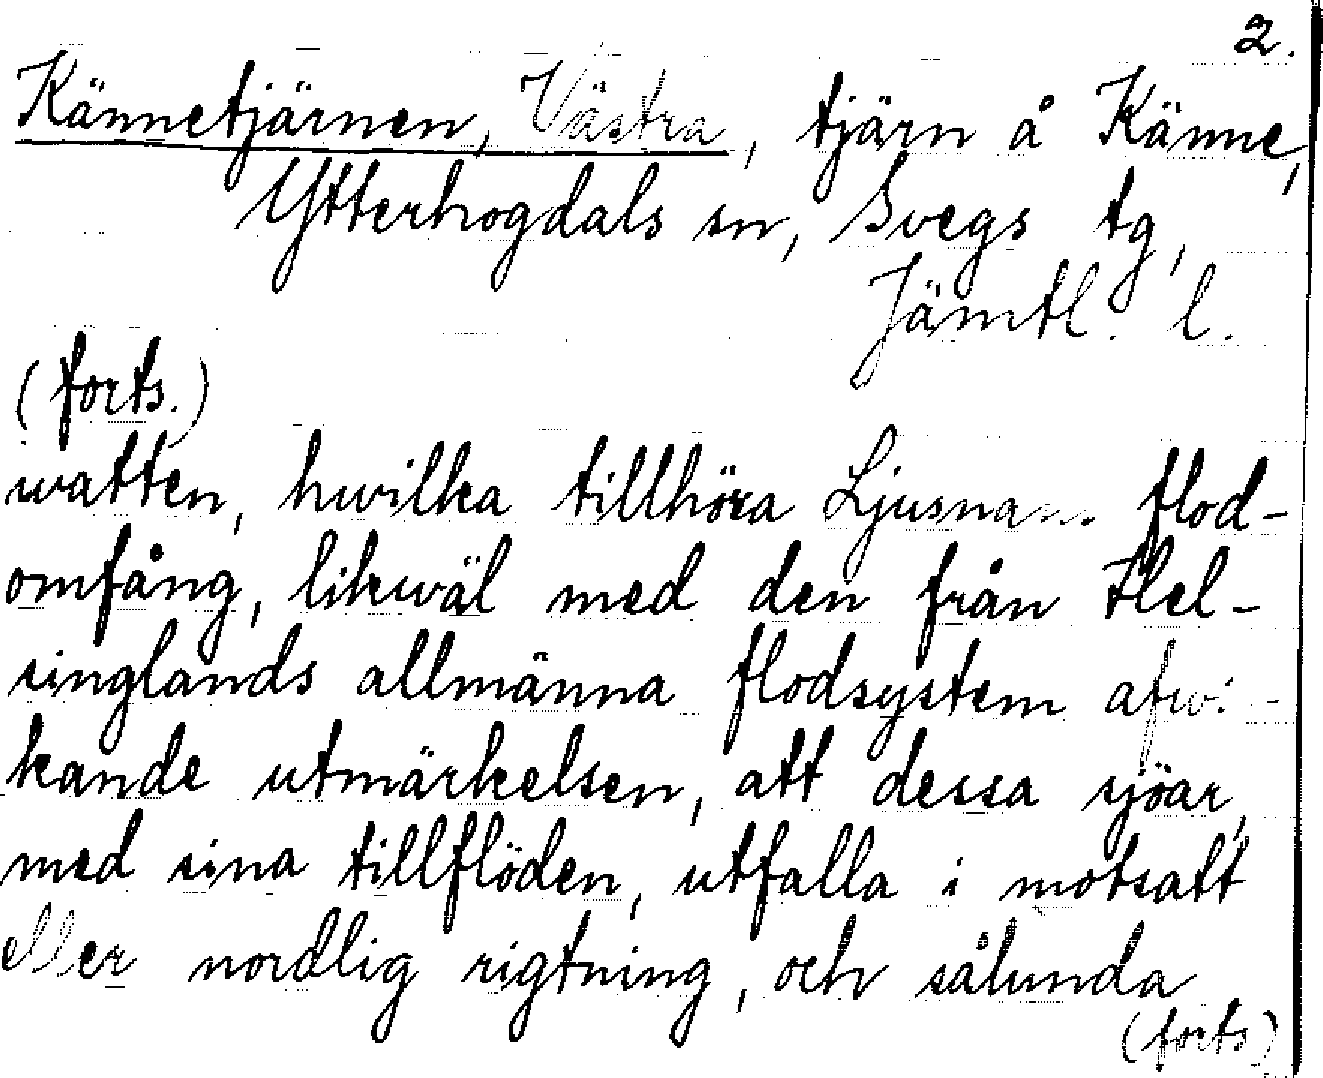 2.
Kännetjärnen, Västra, tjärn å Känne,
Ytterhogdals sn, Svegs tg,
Jämtl. l.
(forts.)
watten, hwilka tillhöra Ljusnans flod-
omfång, likwäl med den från Hel-
singlands allmänna flodsystem afwi-
kande utmärkelsen, att dessa sjöar,
med sina tillflöden, utfalla i motsatt
eller nordlig rigtning, och sålunda
(forts)